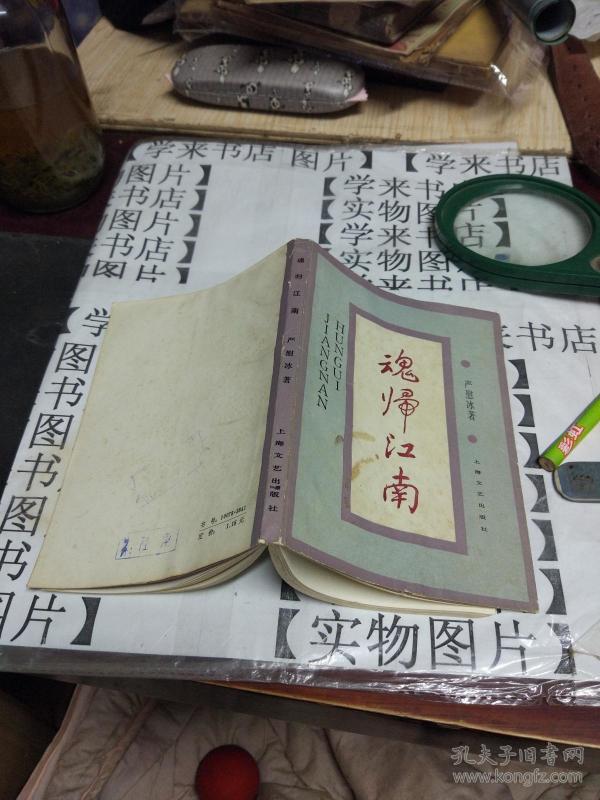 【学来书店 图片】
【学来书店
图片】
书店】
图片】
书店】
图片
【学来书
【实物图
【学来书
【实物图片
魂归江南
严慰冰著
上海文艺出版社
HUNGUI
JIANGNAN
魂帰江南
严慰冰著
上海文艺出版社
定价：1.15元
【学
图
书
图
书
图片】
来书店
彩虹
【实物图片】
孔夫子旧书网
www.kongfz.com